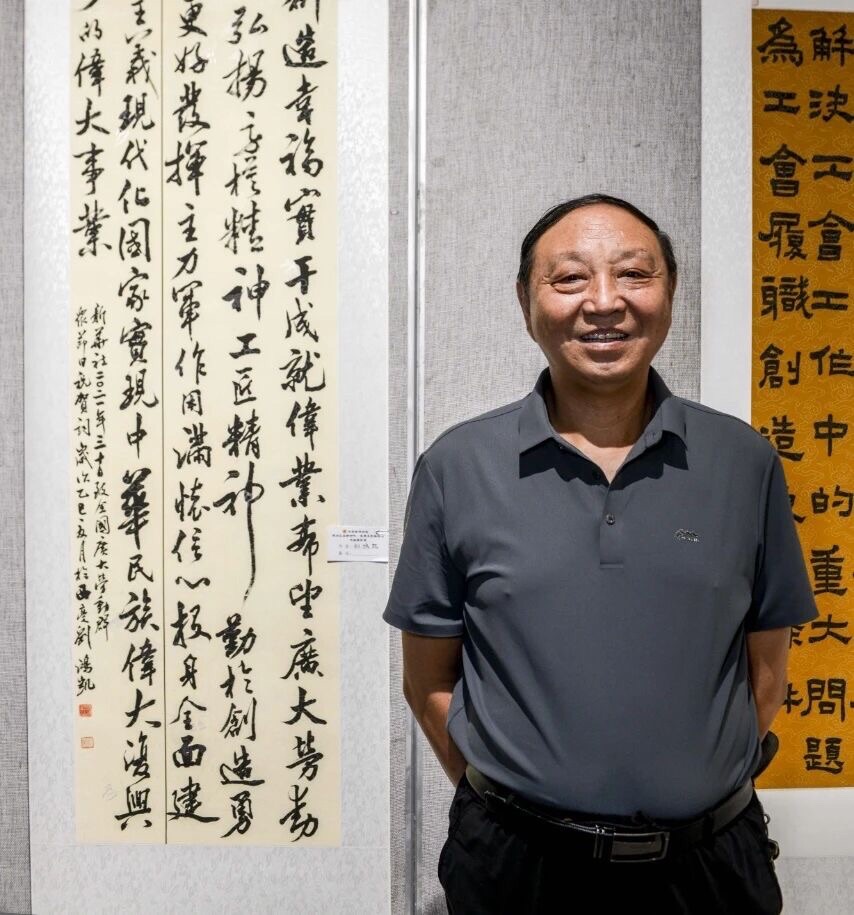 創造幸福實干成就偉業希望廣大勞動
弘揚勞模精神工匠精神勤於創造勇
更好發揮主力軍作用滿懷信心投身全面建
主義現代化國家實現中華民族偉大復興
的偉大事業
新華社二〇二一年三十日致全國廣大勞動群
衆節日祝賀詞歲次乙巳五月於西劉鴻凱
解決工會工作中的重大問題
為工會履職創造